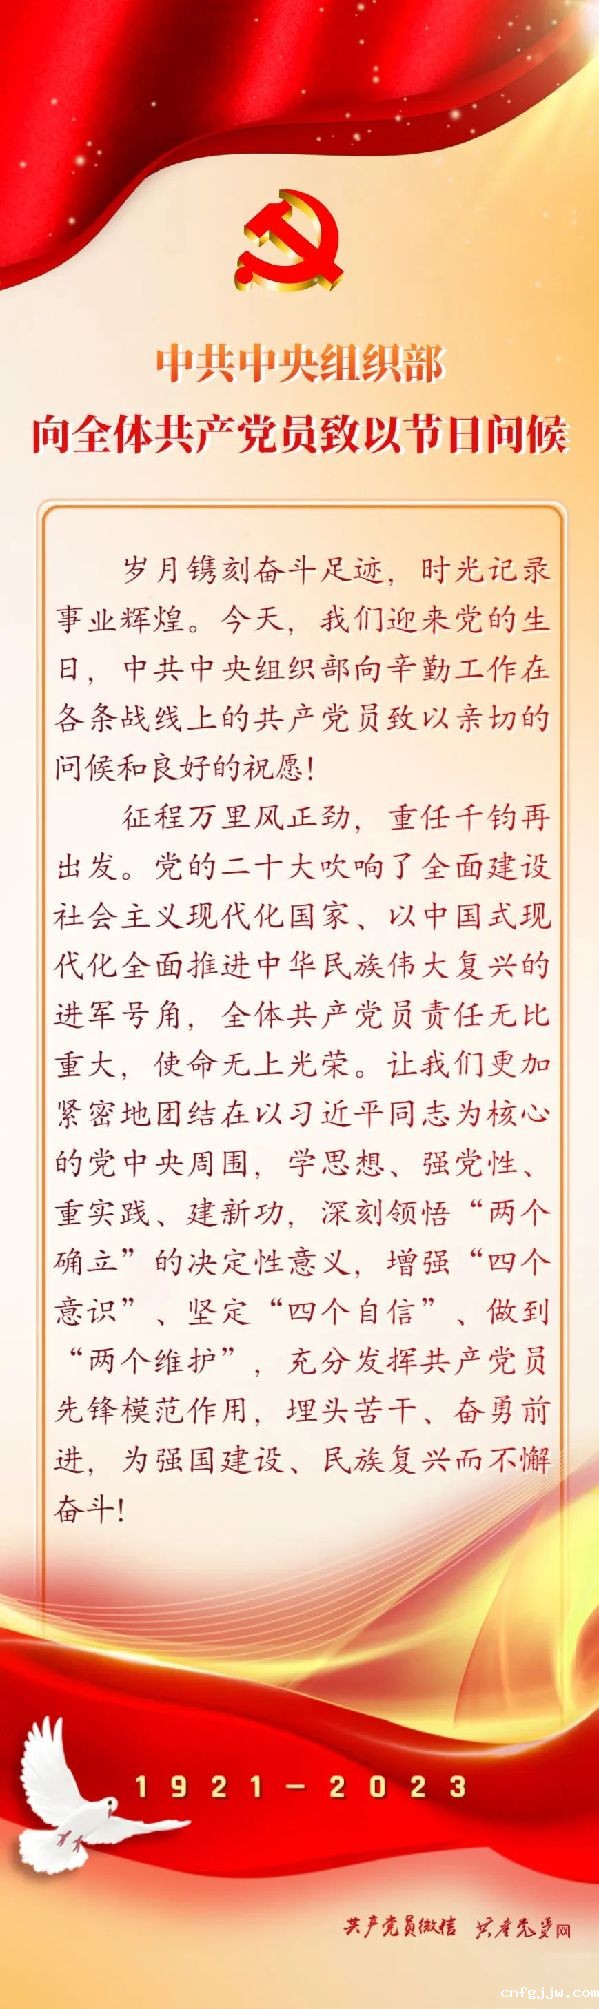 中共中央组织部
向全体共产党员致以节日问候
岁月镌刻奋斗足迹，时光记录
事业辉煌。今天，我们迎来党的生
日，中共中央组织部向辛勤工作在
各条战线上的共产党员致以亲切的
问候和良好的祝愿！
征程万里风正劲，重任千钧再
出发。党的二十大吹响了全面建设
社会主义现代化国家、以中国式现
代化全面推进中华民族伟大复兴的
进军号角，全体共产党员责任无比
重大，使命无上光荣。让我们更加
紧密地团结在以习近平同志为核心
的党中央周围，学思想、强党性、
重实践、建新功，深刻领悟“两个
确立”的决定性意义，增强“四个
意识”、坚定“四个自信”、做到
“两个维护”，充分发挥共产党员
先锋模范作用，埋头苦干、奋勇前
进，为强国建设、民族复兴而不懈
奋斗！
1921－2023
共产党员微信 共产党员网
cnfgjjw.com